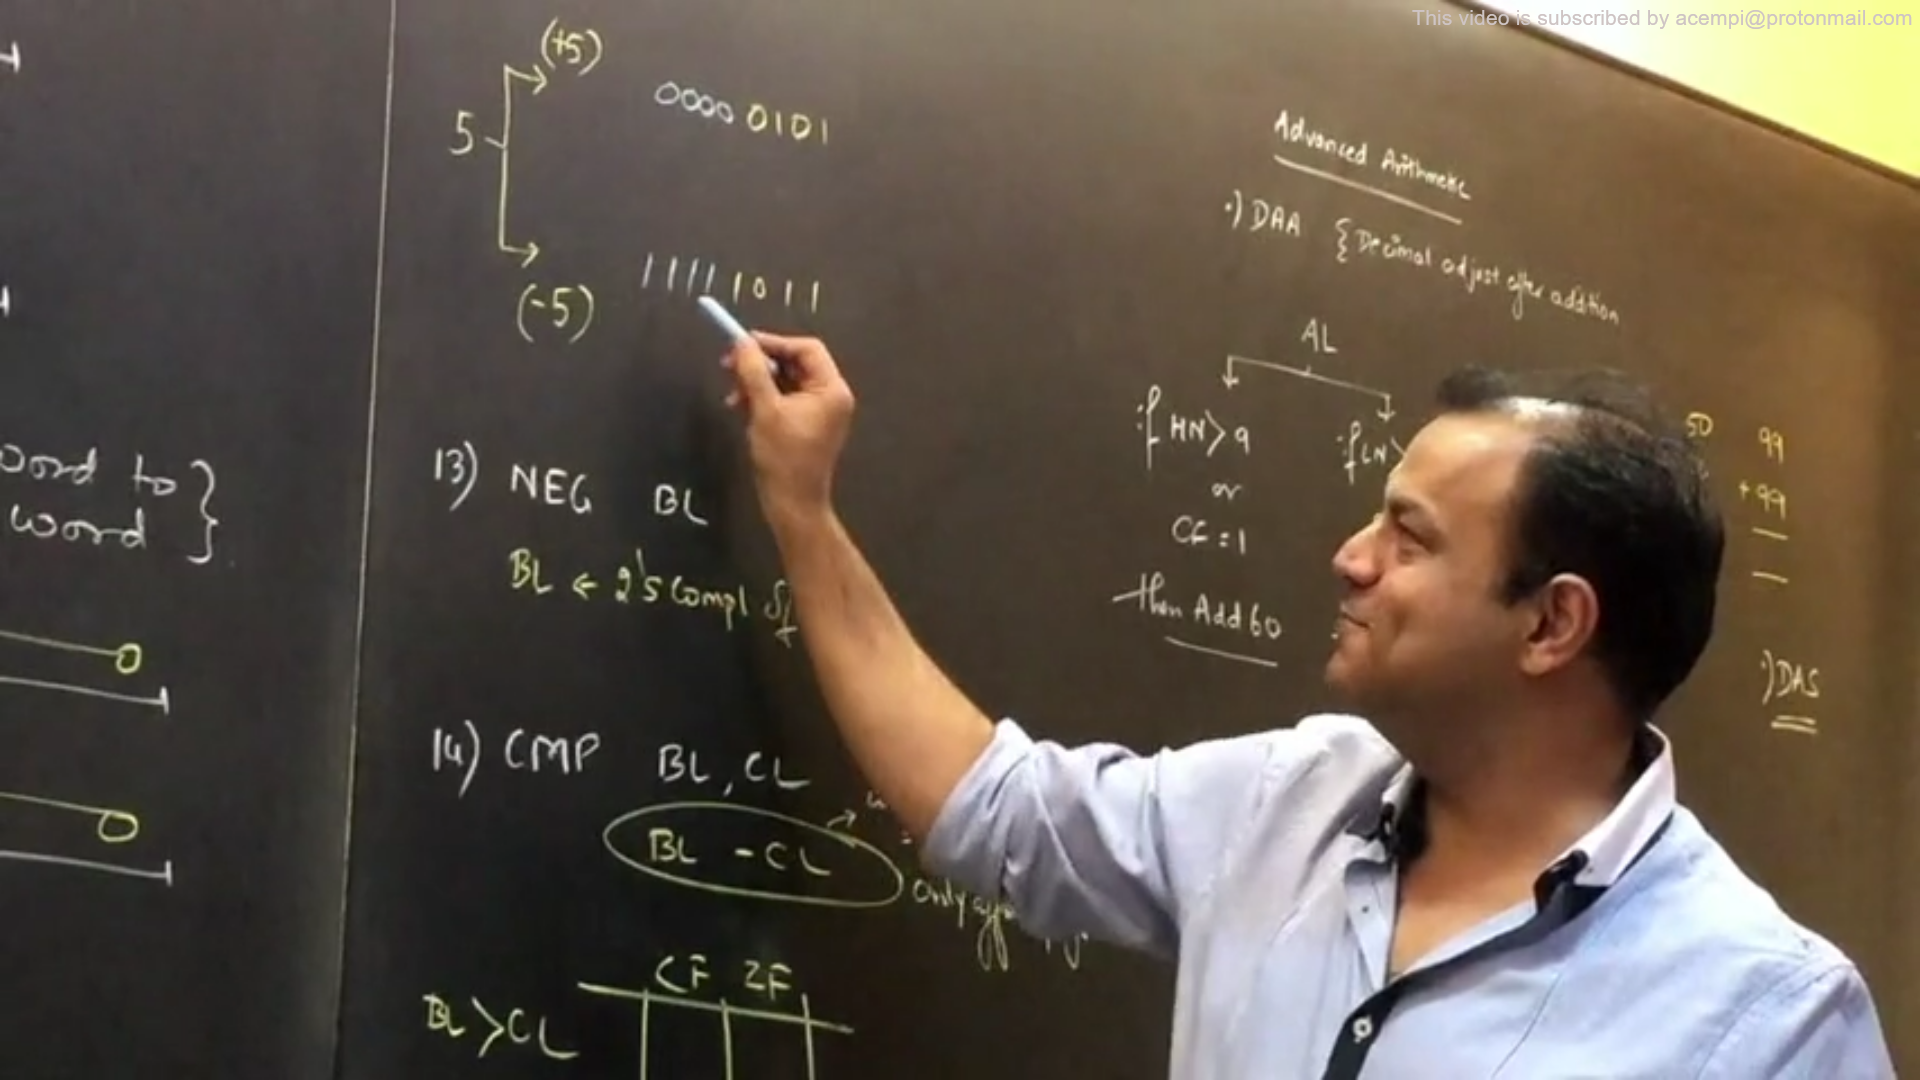 This video is subscribed by acempi@protonmail.com
(+5)
0000 0101
5
(-5)
1111 1011
word to }
word
13) NEG BL
BL ← 2's Compl of
14) CMP BL, CL
BL - CL
Only
CF ZF
BL > CL
Advanced Arithmetic
•) DAA { Decimal adjust after addition
AL
if HN > 9
if LN >
or
CF = 1
then Add 60
50
99
+ 99
•) DAS